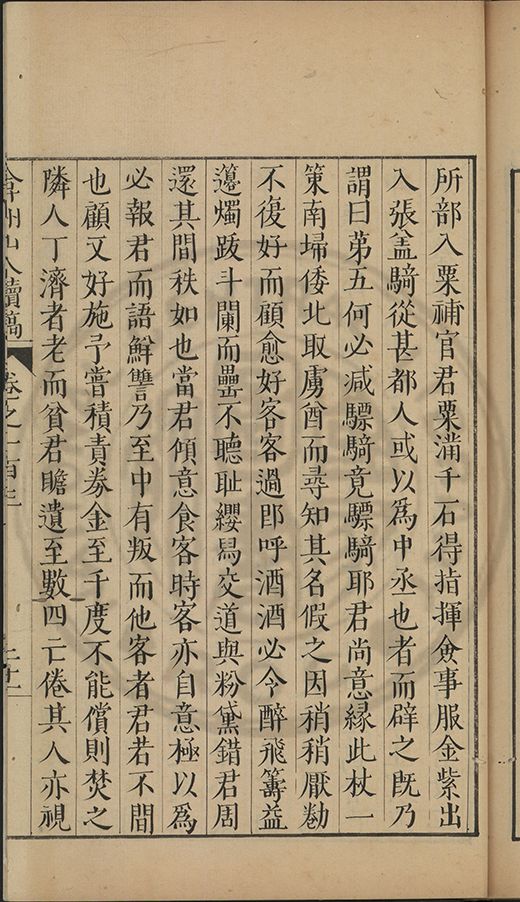 所部入粟補官君粟滿千石得指揮僉事服金紫出
入張盖騎從甚都人或以爲中丞也者而辟之既乃
謂曰苐五何必減驃騎竟驃騎耶君尚意縁此杖一
策南埽倭北取虜酋而尋知其名假之因稍稍厭勌
不復好而顧愈好客客過郎呼酒酒必令醉飛籌益
簉燭跋斗闌而罍不聽耻纓舄交道與粉黛錯君周
還其間秩如也當君傾意食客時客亦自意極以爲
必報君而語鮮讐乃至中有叛而他客者君若不聞
也顧又好施予嘗積責券金至千度不能償則焚之
隣人丁濟者老而貧君贍遺至數四亡倦其人亦視
弇州山人續稿 卷之一百十二